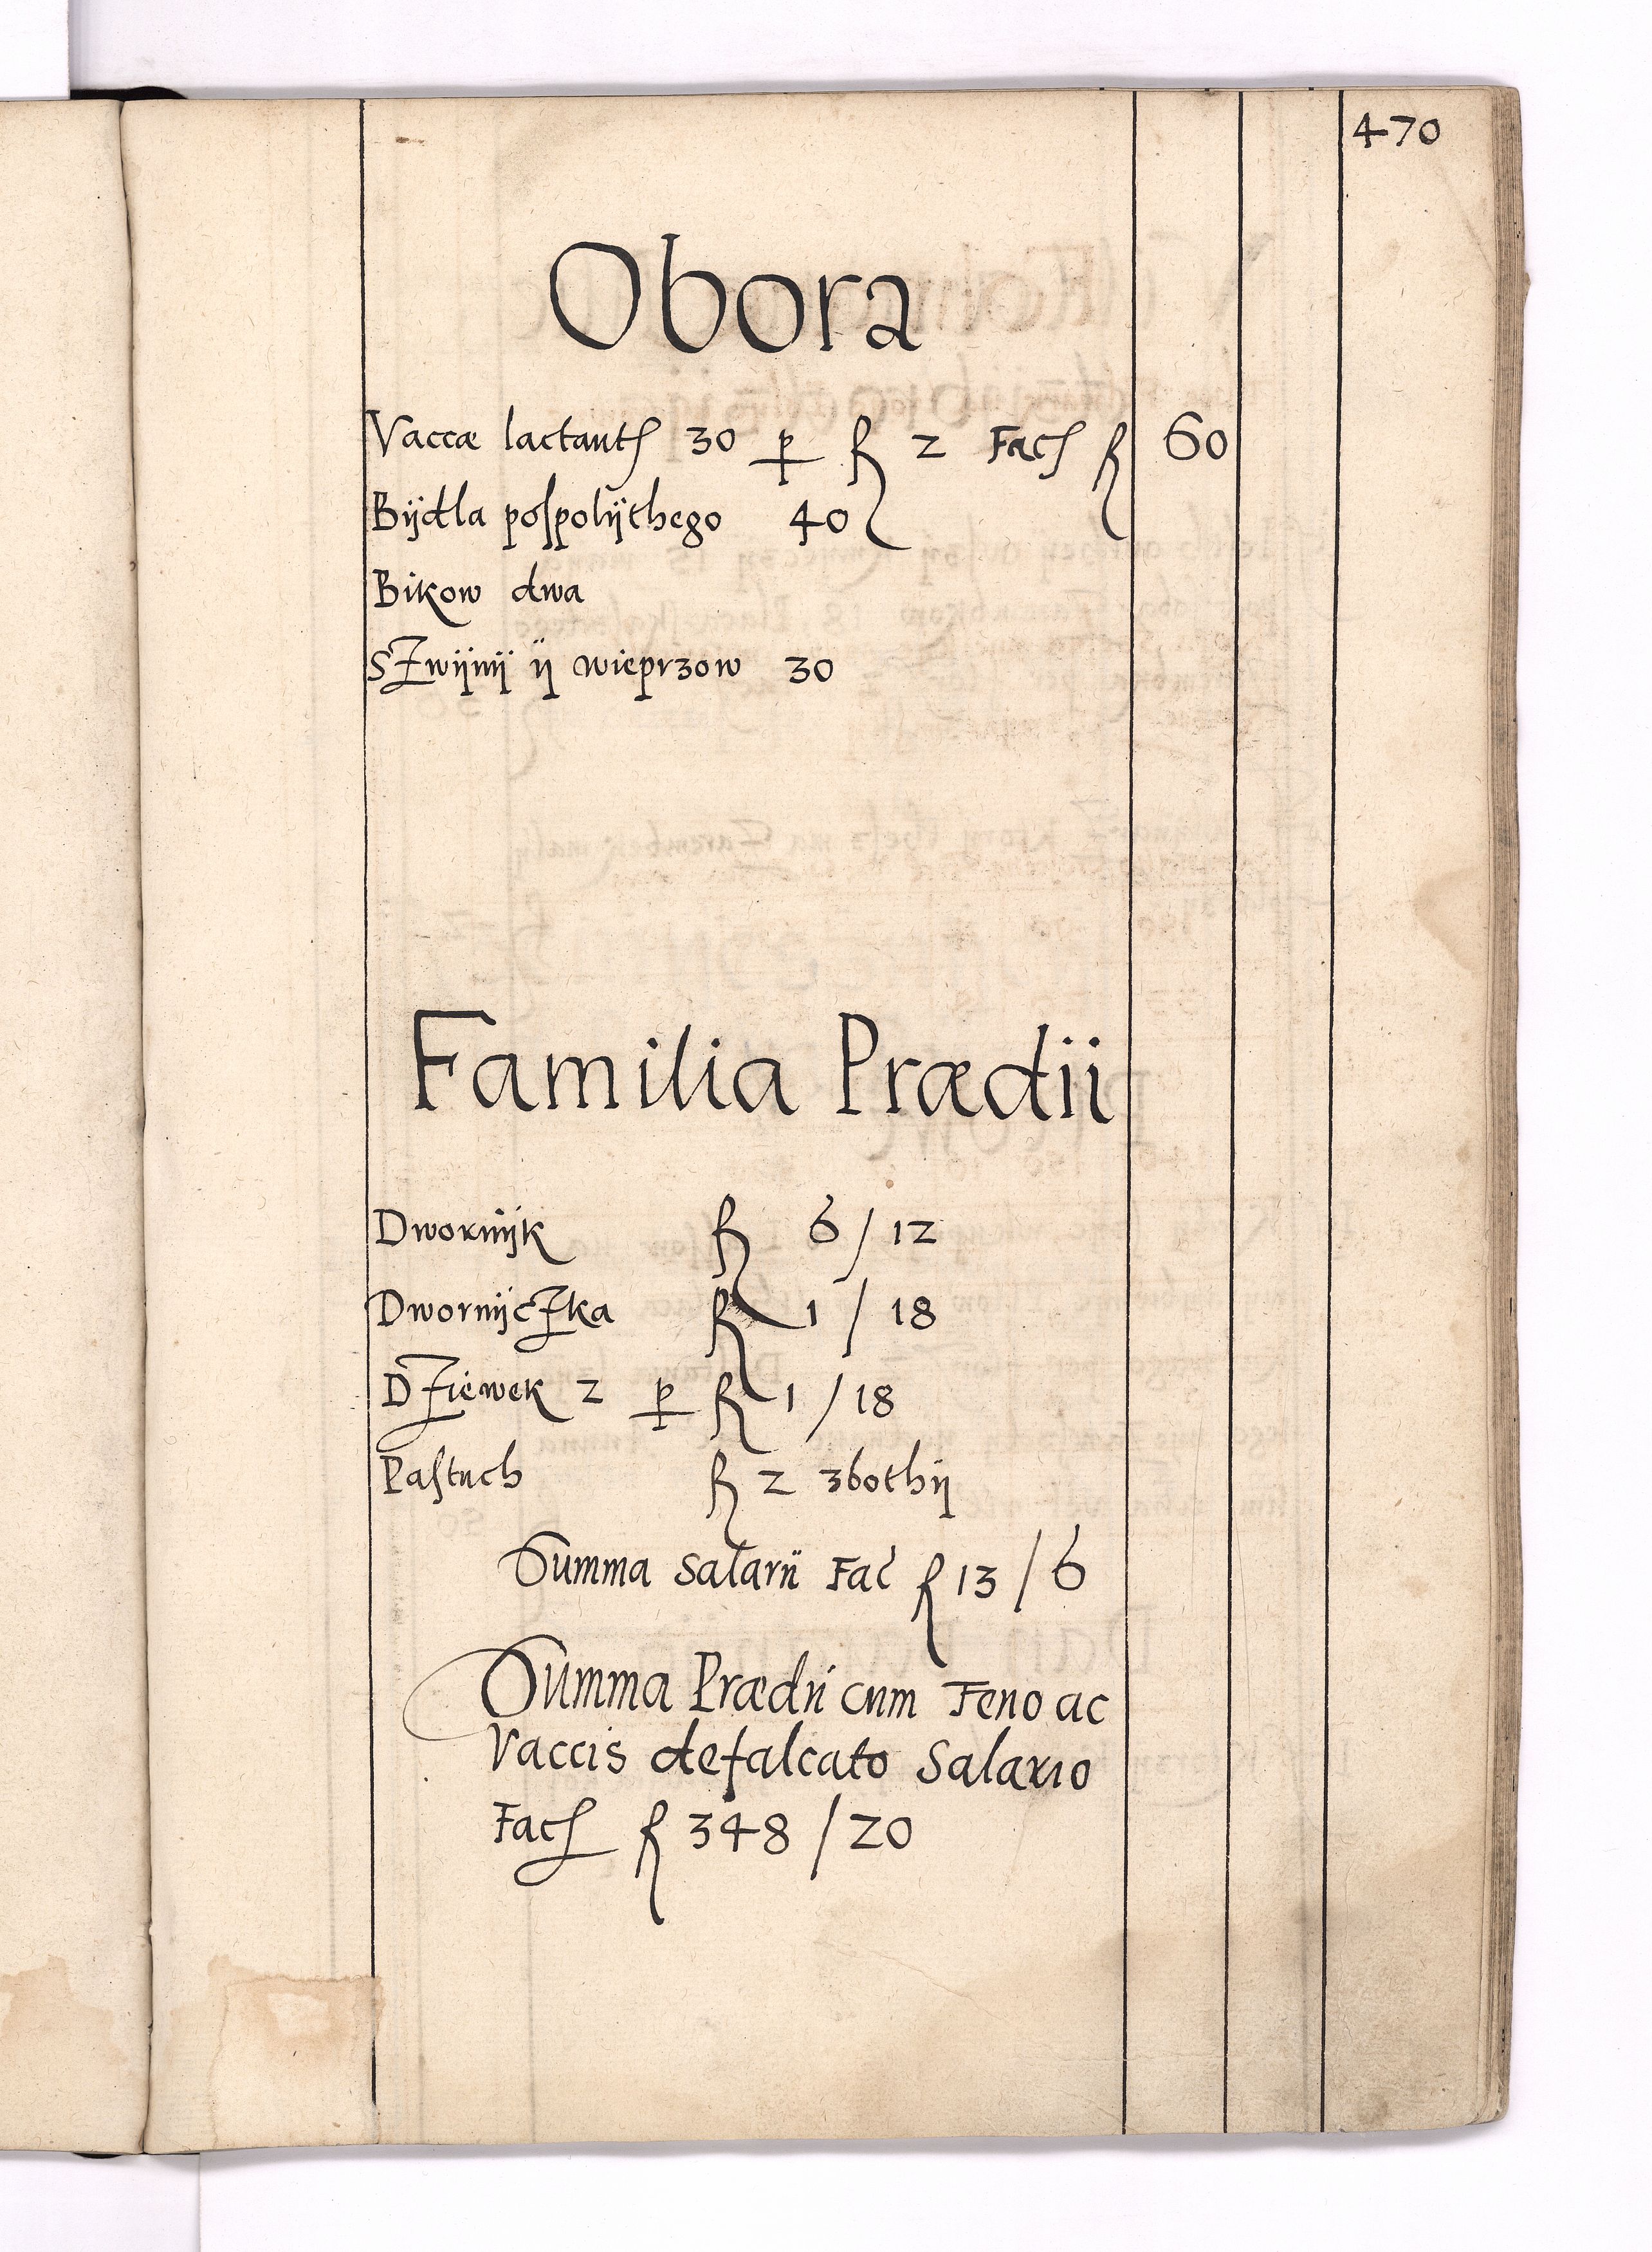 470
Obora
Vaccæ lactantꝭ 30 ꝑ fl 2 Facꝭ fl 60
Bÿdla poſpolÿthego 40
Bikow dwa
SZwÿnÿ ÿ wieprzow 30
Familia Prædii
Dwornÿk fl 6 / 12
DwornÿcZka fl 1 / 18
DZiewek 2 ꝑ fl 1 / 18
Paſtuch fl 2 zbothÿ
Summa Salarii Fac fl 13 / 6
Summa Prædii cum Feno ac
Vaccis defalcato Salario
Facꝭ fl 348 / 20